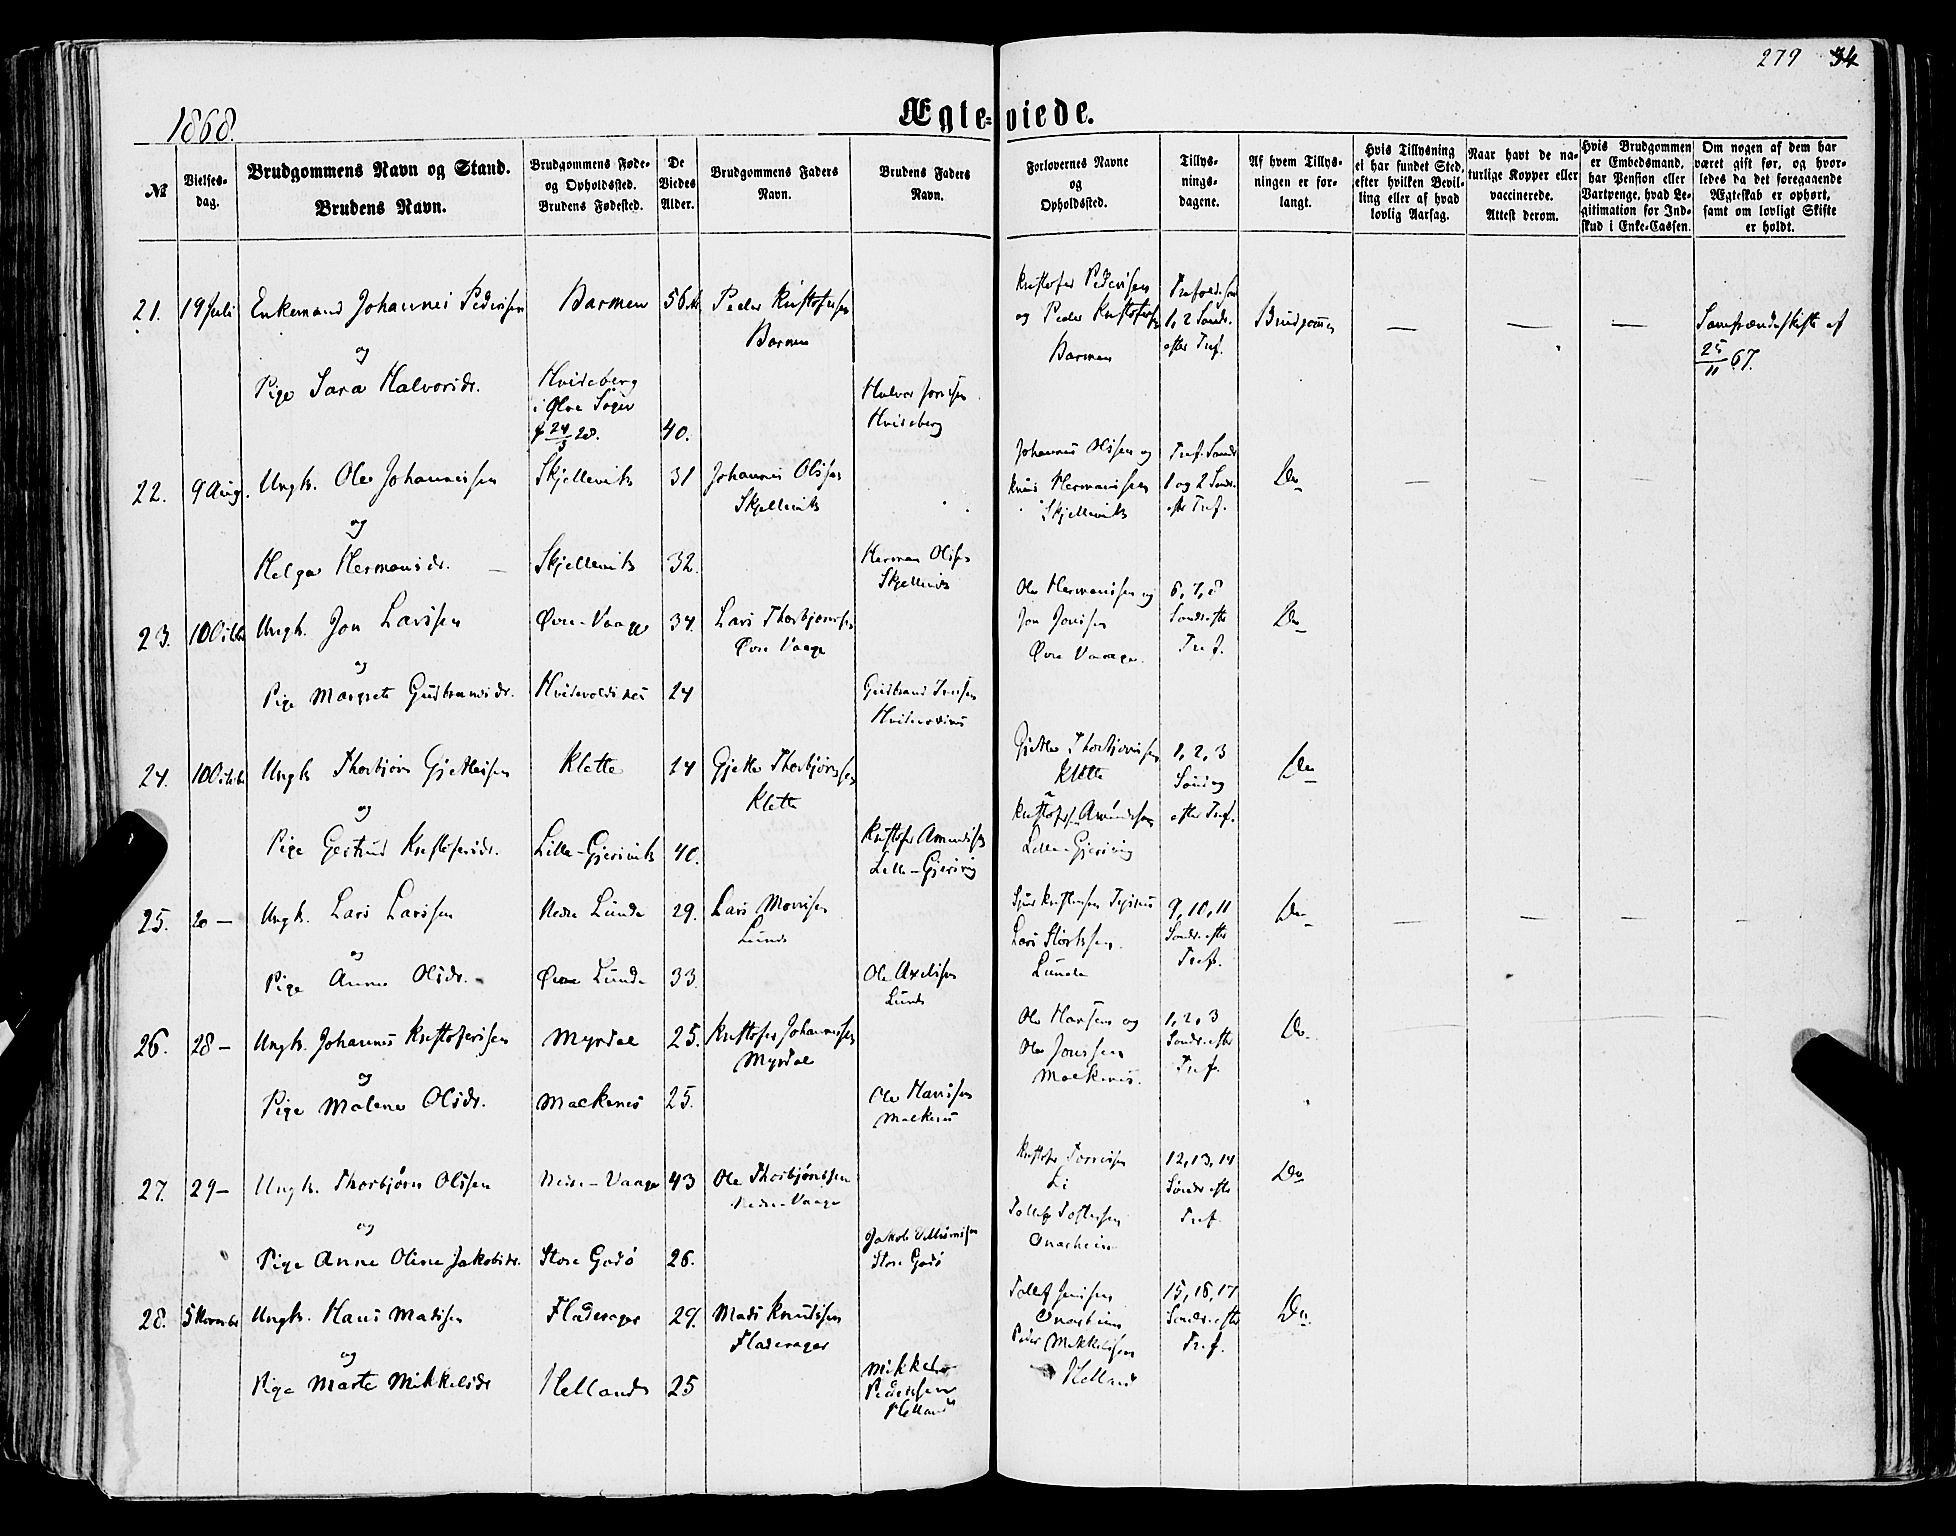 279 34
1868.
Ægte=viede.
№
Vielses-
dag.
Brudgommens Navn og Stand.
Brudens Navn.
Brudgommens Føde-
og Opholdssted.
Brudens Fødested.
De
Viedes
Alder.
Brudgommens Faders
Navn.
Brudens Faders
Navn.
Forlovernes Navne
og
Opholdssted.
Tillys-
nings-
dagene.
Af hvem Tillys-
ningen er for-
langt.
Hvis Tillysning
ei har fundet Sted,
efter hvilken Bevil-
ling eller af hvad
lovlig Aarsag.
Naar havt de na-
turlige Kopper eller
vaccinerede.
Attest derom.
Hvis Brudgommen
er Embedsmand,
har Pension eller
Vartpenge, hvad Le-
gitimation for Ind-
skud i Enke-Cassen.
Om nogen af dem har
været gift før, og hvor-
ledes da det foregaaende
Ægteskab er ophørt,
samt om lovligt Skifte
er holdt.
21. 19 Juli Enkemand Johannes Pedersen
og
Pige Sara Halvorsdr.
Barmen
Hviseberg
i Ølve Sogn
24/3 28.
56
40.
Peder Kristofersen
Barmen
Halvor
Hviseberg
Kristofer Pedersen
og Peder Kristofersen
Barmen
1, 2 Sønd.
efter Tref.
Brudgommen
— — —
Samfrændeskifte af
25/11 67.
22. 9 Aug. Ungk. Ole Johannessen
og
Helga Hermansdr. —
Skjellevik
Skjellevik
31
32.
Johannes Olsen
Skjellevik
Herman Olsen
Skjellevik
Johannes Olsen og
Knud Hermansen
Skjellevik
Tref. Sønd.
1 og 2 Sønd.
efter Tref.
Do
— — —
23. 1 Octbr Ungk. Jon Larssen
og
Pige Margrete Gudbrandsdr.
Øvre-Vaage
Hvidevoldsnes
34.
24
Lars Thorbjørnsen
Øvre Vaage
Gudbrand
Ole Hermansen og
Jon Jonssen
Øvre Vaage.
6, 7, 8
Sønd. efter
Tref.
Do
24. 1 Octbr Ungk Thorbjørn Gjetlesen
og
Pige Gertrud Kristofersdr.
Klette
Lille-Gjersvik
24
40.
Gjetle Thorbjørnsen
Klette
Kristofer Amundsen
Lille-Gjersvig
Gjetle Thorbjørnsen
Klette
Kristofer Amundsen
Lille-Gjersvig
1, 2, 3
Søndag
efter Tref.
Do
25. 20 — Ungk. Lars Larssen
og
Pige Anna Olsdr.
Nedre Lunde
Øvre Lunde
29.
33.
Lars Monsen
Lunde
Ole Axelsen
Lunde
Lars
Lunde
9, 10, 11
Sønd. efter
Tref.
Do
— — — —
26. 28 — Ungk. Johannes Kristofersen
og
Pige Malene Olsdr.
Myrdal
Malkenes
25.
25.
Kristofer Johannessen
Myrdal
Ole Hanssen
Malkenes
Ole Hansen og
Ole Jonssen
Malkenes.
1, 2, 3
Sønd. efter
Tref.
Do.
27. 29 — Ungk. Thorbjørn Olssen
og
Pige Anne Oline Jakobsdr.
Nedre-Vaage
Store Godø
43
26.
Ole Thorbjørnssen
Nedre-Vaage
Jakob
Store Godø
Kristofer
Li
Onarheim
12, 13, 14
Sønd. efter
Tref.
Do
28. 5 Novemb. Ungk. Hans Madsen
og
Pige Marte Mikkelsdr
Fladerager
Helland
29.
25
Mads Knudssen
Fladerager
Mikkel
Pedersen
Helland
Onarheim
Peder Mikkelsen
Helland
15, 16, 17
Sønd. efter
Tref.
Do.